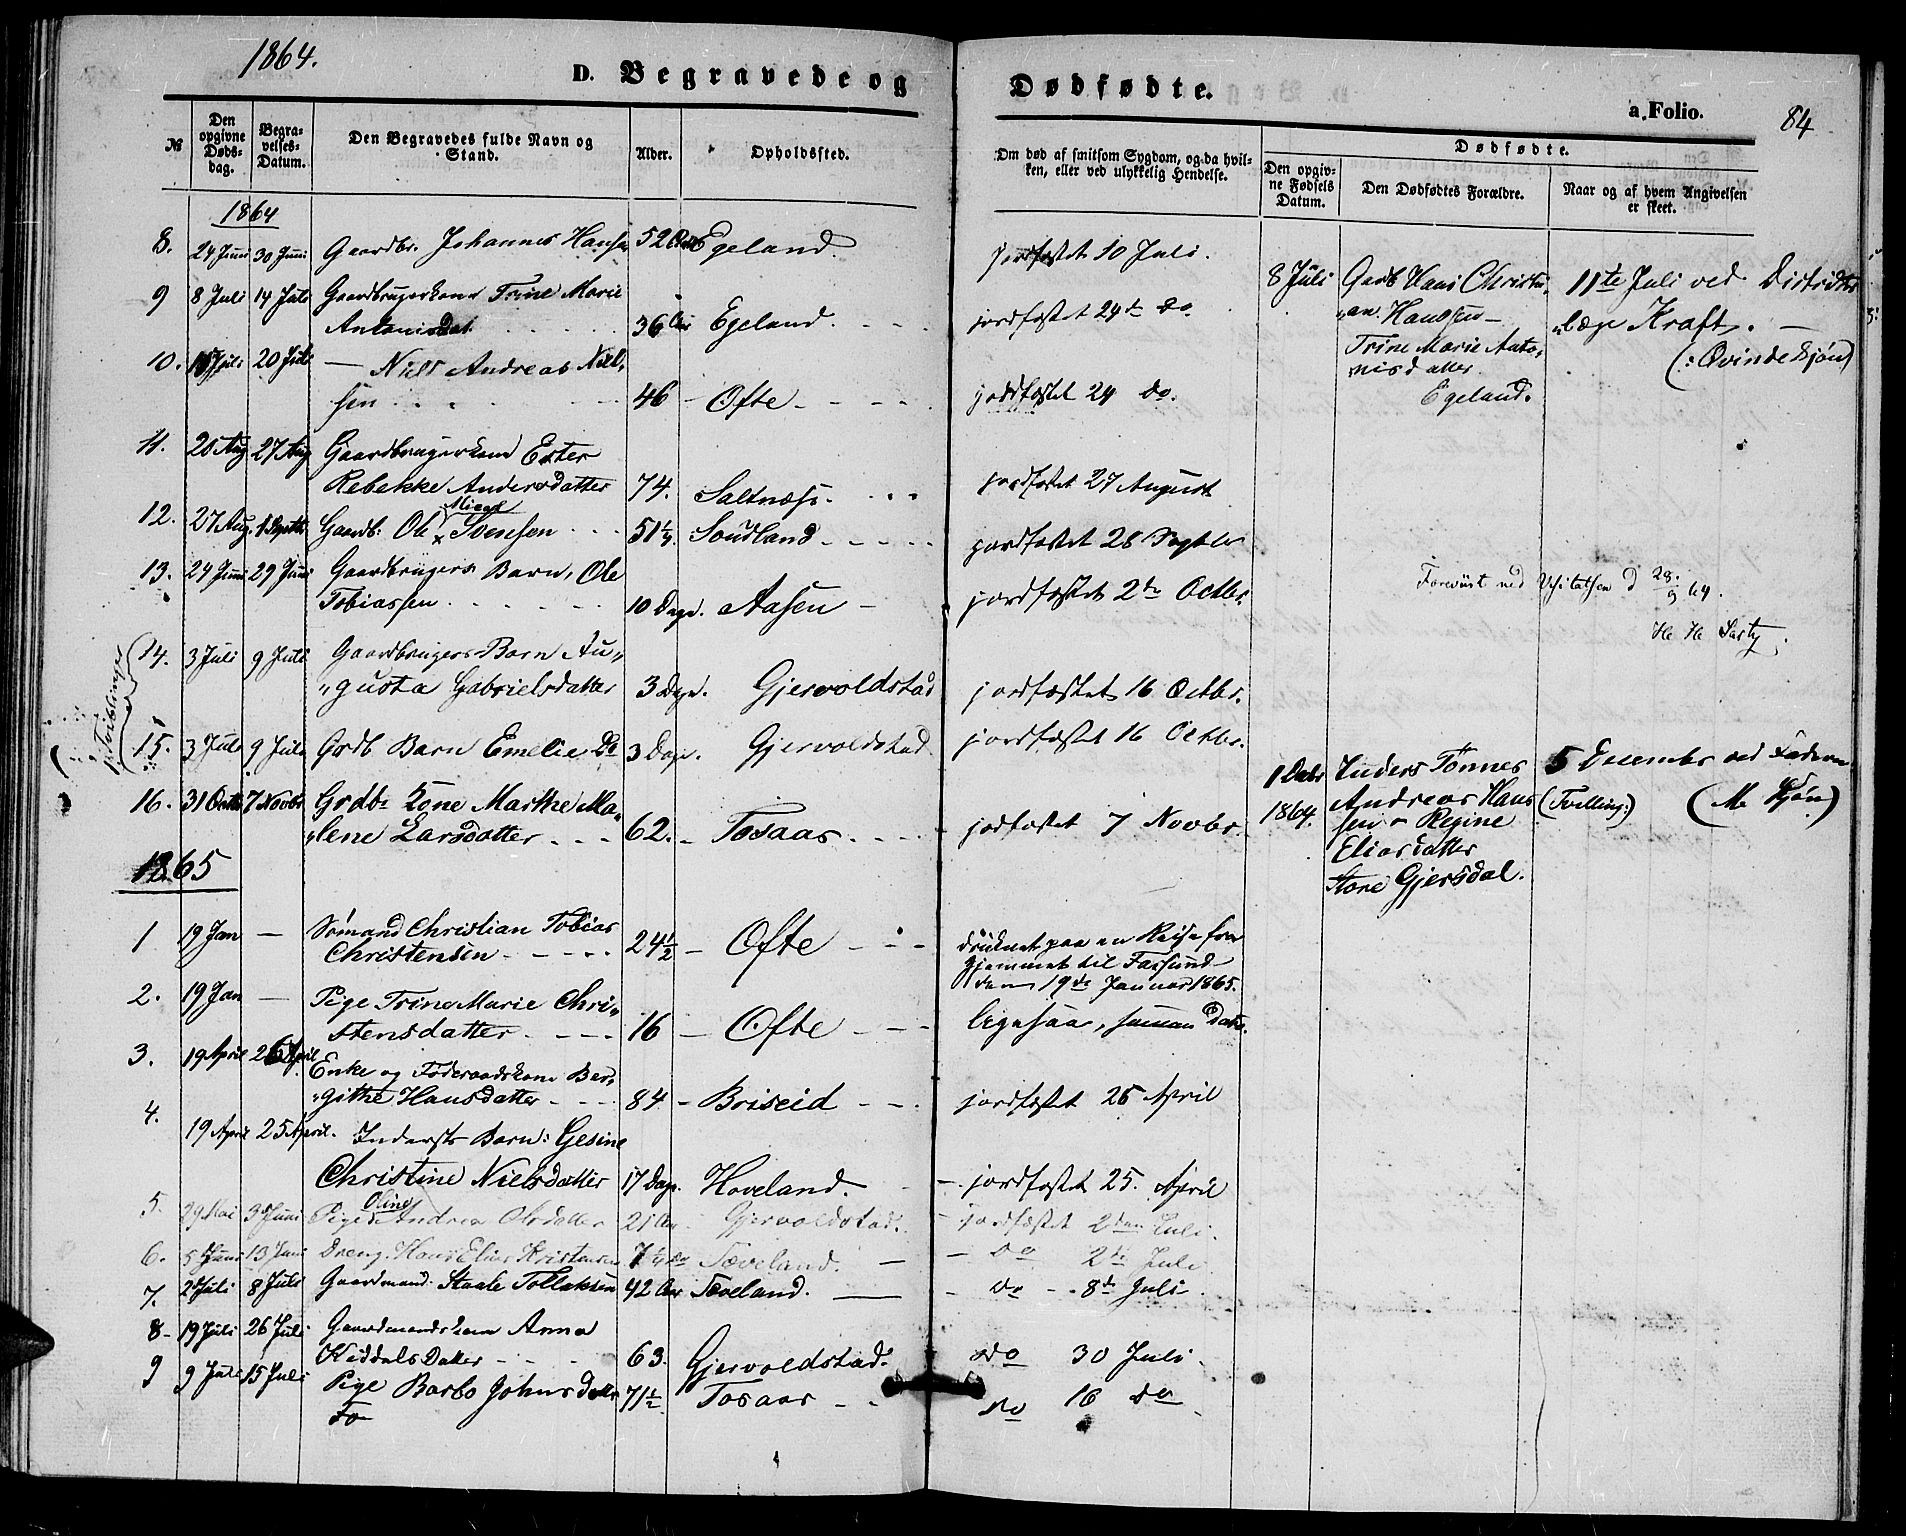 1864.
D. Begravede og Dødfødte.
a. Folio. 84
№
Den opgivne Dødsdag.
Begravelses-Datum.
Den Begravedes fulde Navn og Stand.
Alder.
Opholdssted.
Om død af smitsom Sygdom, og da hvilken, eller ved ulykkelig Hendelse.
Dødfødte.
Den opgivne Fødsels Datum.
Den Dødfødtes Forældre.
Naar og af hvem Angivelsen er skeet.
1864
8. 24 Juni 30 Juni Gaardbr. Johannes Hansen 52 Aar Egeland. jordfæstet 10 Juli.
9 8 Juli 14 Juli Gaardbrugerkone Trine Marie
Antonisdat 36 Aar Egeland. jordfæstet 24de do
10. 15 Juli 20 Juli — Niels Andreas Niel-
sen 46 - Ofte jordfæstet 24 do.
11. 20 Aug 27 Aug Gaardbrugerkone Ester
Rebekke Andersdatter 74. Saltnæss. jordfæstet 27 August
12. 27 Aug. 1 Septbr Gaardb: Ole Svensen 51 1/4 Søudland jordfæstet 28 Septbr
13. 24 Juni 29 Juni Gaardbrugers Barn, Ole
Tobiassen 10 Dage. Aasen - jordfæstet 2de Octbr.
14. 3 Juli 9 Juli Gaardbrugers Barn Au„
„gusta Gabrielsdatter 3 Dage. Gjervoldstad jordfæstet 16 Octbr.
Tvillinger
15. 3 Juli 9 Juli Grdb Barn Emelie Do 3 Dage. Gjervoldstad jordfæstet 16 Octbr.
16. 31 Octb 7 Novbr Grdbr Kone Marthe Ma„
„lene Larsdatter 62. Tosaas. jordfæstet 7 Novbr.
8 Juli Gardb Hans Christi„
„an Hansen -
Trine Marie Anto„
nisdatter
Egeland.
11te Juli ved Distrikts
„læge Kraft. -
(: Qvindekjøn)
Forevist ved Visitatsen d 28/9 64.
1 Decbr 1864. Anders Tønnes
Andreas Han
sen & Regine
Eliasdatter
Store Gjersdal.
5 December ved Faderen
(Tvilling:) (M. Kjøn)
1865
1 19 Jan — Sømand Christian Tobias
Christensen 24 1/2 - Ofte druknet paa en Reise fra
Hjemmet til Farsund
den 19de Januar 1865.
2. 19 Jan — Pige Trine Marie Chri„
stensdatter 16 - Ofte ligesaa, samme Dato.
3. 19 April 26 April Enke og Føderaadskone Ber„
„githe Hansdatter 84 - Briseid jordfæstet 26 April
4. 19 April 25 April. Inderst Barn: Gesine
Christine Nielsdatter 17 Dage. Hoveland. - jordfæstet 25. April
5. 29 Mai 3 Juni Pige Oline Andrea Olsdatter 21 Aar. Gjervoldstad. - jordfæstet 2den Juli.
6. 5 Juni 13 Juni Dreng. Hans Elias Kristensen 7 1/4 Aar Tæveland. - do 2de Juli
7. 2 Juli 8 Juli Gaardmand. Staale Tollaksen 42 Aar Tæveland. - do - 8de Juli
8 - 19 Juli 26 Juli Gaardmandskone Anna
Kiddelsdatter 63. Gjervoldstad. do 30 Juli
9 9 Juli 15 Juli Pige Barbo Johnsdatter 71 1/2 Tosaas do 16 do
To